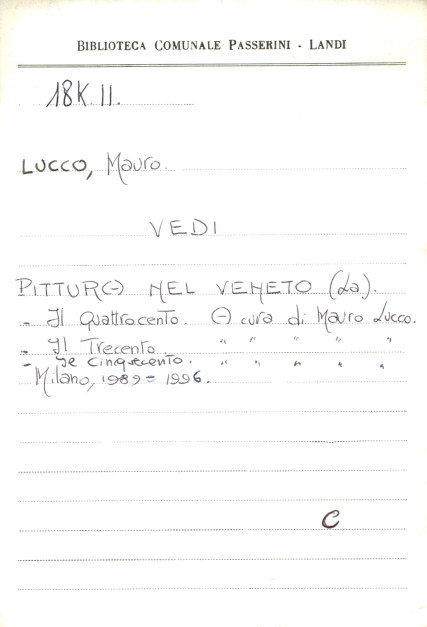 BIBLIOTECA COMUNALE PASSERINI - LANDI
18K II.
LUCCO, Mauro.
VEDI
PITTURA NEL VENETO (La).
- Il Quattrocento. A cura di Mauro Lucco.
- Il Trecento. " " " " "
- Il Cinquecento. " " " " "
Milano, 1989-1996.
C